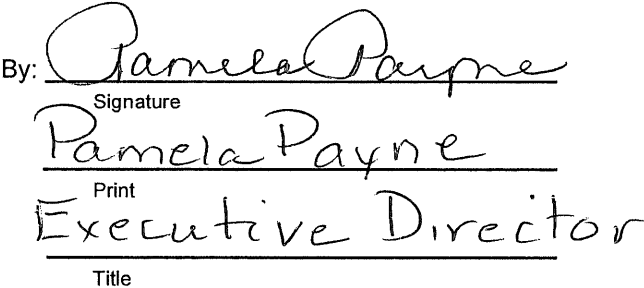 By: Pamela Payne
Signature
Pamela Payne
Print
Executive Director
Title